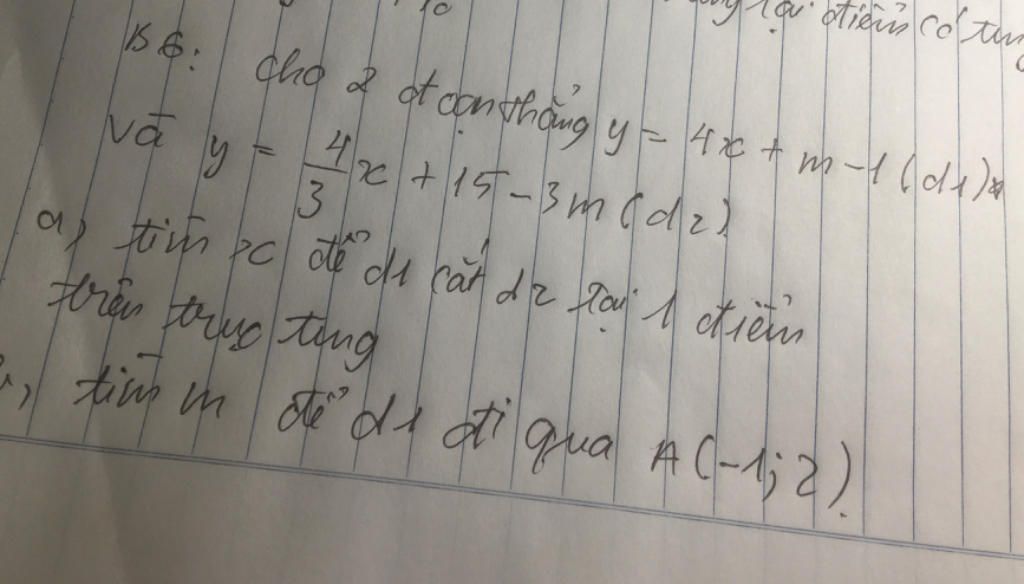 lại điểm có tun
B6: Cho 2 đ oạn thẳng y = 4x + m - 1 (d1)
Và y = 4/3 x + 15 - 3m (d2)
a) tìm x để d1 cắt d2 tại 1 điểm
trên trục tung
tìm m để d1 đi qua A(-1; 2).